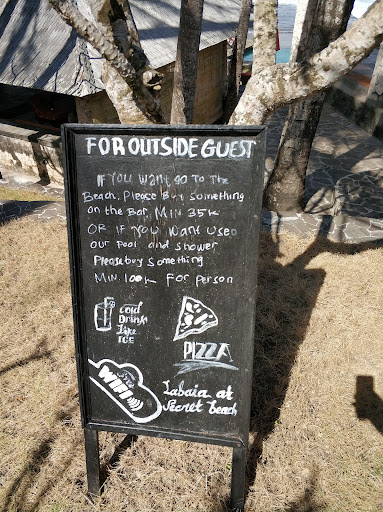 FOR OUTSIDE GUEST
IF YOU WANT GO TO THE
Beach, Please Buy Something
on the Bar, MIN 35K
OR IF YOU WANT USED
our Pool and shower
Please buy something
MIN. 100K FOR person
cold
DRINK
Like
ICE
PIZZA
Free
WIFI
Labaia at
Secret beach